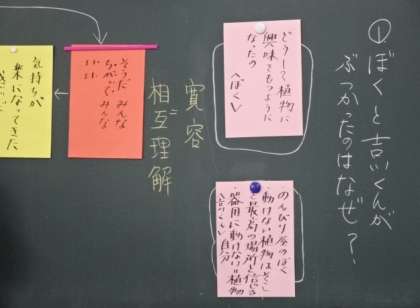 ①ぼくと吉くんが
ぶつかったのはなぜ?
どうして植物に
興味をもつように
なったの
〈ぼく〉
のんびり屋のぼく
・動けない植物はそこ
を最高の場所と信じる
・器用に動けない植物
自分
寛容
=
相互理解
そうだ みんな
ちがって、みんな
いい
気持ちが
楽になってきた